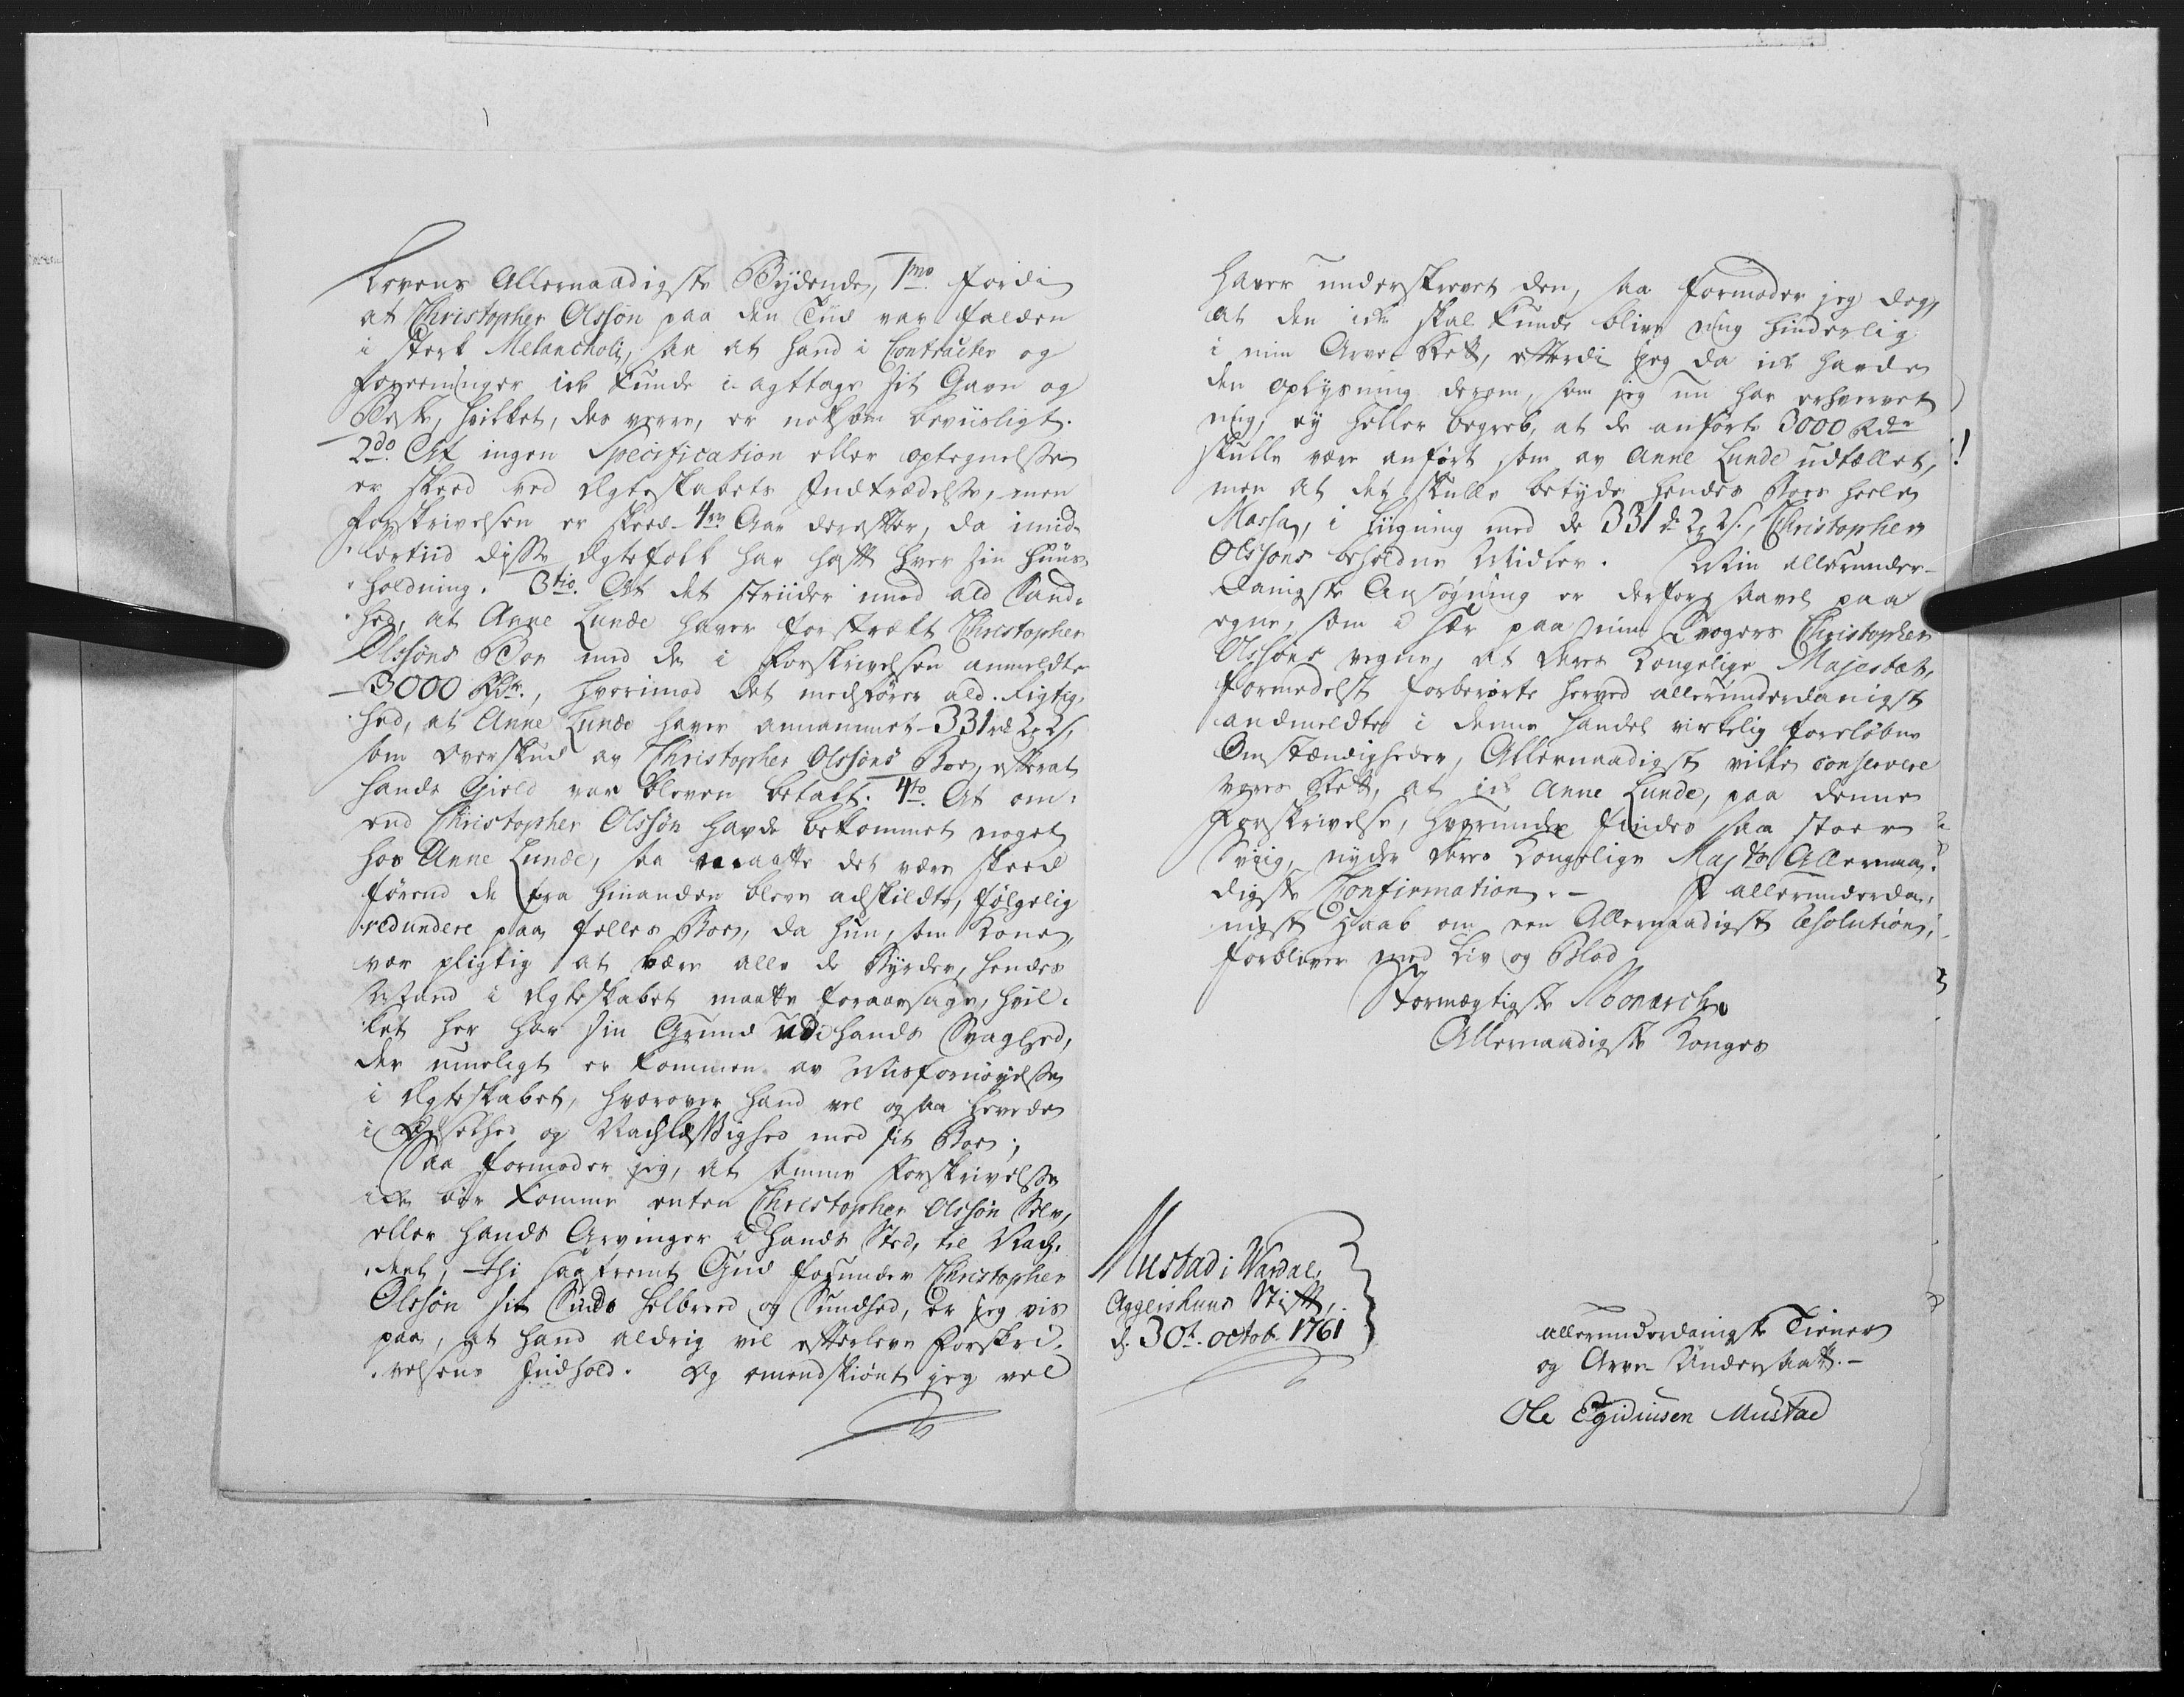 Lovens Allernaadigste Bydende, 1mo. fordi
at Christopher Olssøn paa den Tiid var falden
i sterk Melancholi, saa at hand i Contracter og
foreeninger ick kunde i agttage sit Gavn og
Beste, hvilket, des verre, er noksom beviisligt.
2do. At ingen Specification eller optegnelse
er skeed ved Ægteskabets Indtrædelse, men
forskrivelsen er skeed 4re Aar derefter, da imid-
lertiid disse Ægtefolk har haft hver sin Huus-
holdning. 3tio. At det striider imod ald Sand-
hed, at Anne Lunde haver forstrækt Christopher
Olssøns Boe med de i Forskrivelsen anmeldte
3000 Rdr., hvorimod det medfører ald Rigtig-
hed, at Anne Lunde haver annammet 331 rd 2 s,
som overskud av Christopher Olssøns Boe, efterat
hands Gield var bleven betalt. 4to. At om-
end Christopher Olssøn havde bekommet noget
hos Anne Lunde, saa maatte det være skeed
førend de fra hinanden bleve adskildte, følgelig
redundere paa felles Boe, da hun, som Kone,
var pligtig at bære alle de Byrder, hendes
Mand i Ægteskabet maatte foraarsage, hvil-
ket her har sin Grund udi hands Svaghed,
der umeligt er kommen av Misfornøyelse
i Ægteskabet, hvorover hand vel ogsaa levede
i og Nachlæssighed med sit Boe;
Saa formoder jeg, at samme Forskrivelse
icke bør komme enten Christopher Olssøn Selv,
eller hands Arvinger i hands Sted, til Nach-
deel, thi saafremt Gud forunder Christopher
Olssøn sit Sinds helbreed og Sundhed, er jeg vis
paa, at hand aldrig vil efterleve Forskri-
velsens Indhold. Og omendskiønt jeg vel
haver underskrevet den, saa formoder jeg dog,
at den icke skal kunde blive mig hinderlig
i min Arve Rett, efterdi jeg da ick havde
den oplysning derom, som jeg nu har erhvervet
mig, ey heller begreb, at de anførte 3000 Rdr
skulle være anført som av Anne Lunde udtællet,
men at det skulle betyde hendes Boes heele
Massa, i liigning med de 331 d 2 s., Christopher
Olssøns beholdne Midler. Min allerunder-
danigste Ansøgning er derfor saavel paa
egne, som i sær paa min Svogers Christopher
Olssøns vegne, at Deres Kongelige Majestæt,
formedelst forberørte herved allerunderdanigst
andmeldte i denne handel virkelig forløbne
Omstændigheder, Allernaadigst ville conservere
vores Rett, at ick Anne Lunde, paa denne
Forskrivelse, hvorunder findes saa stoer
Sviig, nyder Deres Kongelige Majts Allernaa-
digste Confirmation. - I allerunderda-
nigst Haab om een Allernaadigst Resolution,
forbliver med Liv og Blod
Stormægtigste Monarchs
Allernaadigste Konges
Mustad i Wardal,
Aggershuus Stift,
d. 30t. octob. 1761
allerunderdanigste Tiener
og Arve Undersaatt. -
Ole Egidiusen Mustad